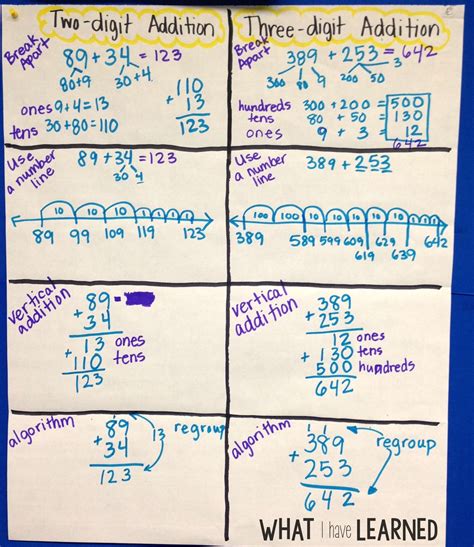 Two-digit Addition
Break Apart
89 + 34 = 123
80+9 30+4
ones 9+4=13
tens 30+80=110
110
+ 13
123
Three-digit Addition
Break Apart
389 + 253 = 642
300 80 9 200 50 3
hundreds 300 + 200 = 500
tens 80 + 50 = 130
ones 9 + 3 = 12
642
Use a number line
89 + 34 = 123
30 4
10 10 10 1 1 1 1
89 99 109 119 123
389 + 253
100 100 10 10 10 10 10 1 1 1
389 589 599 609 619 629 639 642
vertical addition
89 =
+ 34
13 ones
+ 110 tens
123
vertical addition
389
+ 253
12 ones
+ 130 tens
500 hundreds
642
algorithm
1
89
+ 34
123
13 regroup
algorithm
1 1
389
+ 253
642
regroup
WHAT I have LEARNED